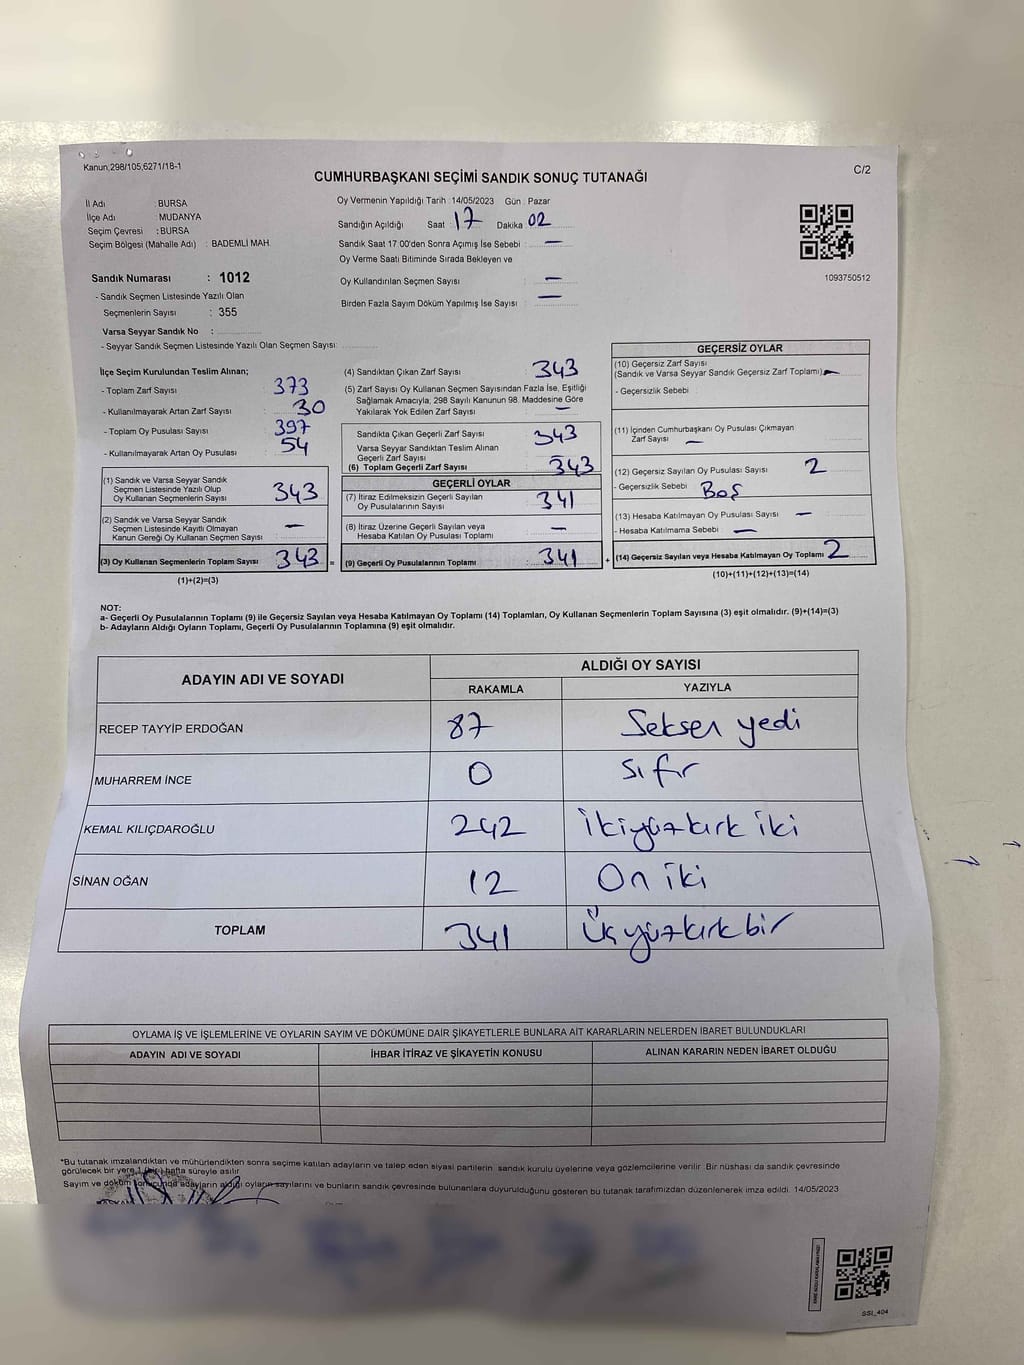 Kanun,298/105,6271/18-1
C/2
CUMHURBAŞKANI SEÇİMİ SANDIK SONUÇ TUTANAĞI
İl Adı : BURSA
İlçe Adı : MUDANYA
Seçim Çevresi : BURSA
Seçim Bölgesi (Mahalle Adı) : BADEMLİ MAH.
Sandık Numarası : 1012
- Sandık Seçmen Listesinde Yazılı Olan
Seçmenlerin Sayısı : 355
Varsa Seyyar Sandık No :
- Seyyar Sandık Seçmen Listesinde Yazılı Olan Seçmen Sayısı:
Oy Vermenin Yapıldığı Tarih :14/05/2023 Gün : Pazar
Sandığın Açıldığı Saat 17 Dakika 02
Sandık Saat 17 00'den Sonra Açımış İse Sebebi : —
Oy Verme Saati Bitiminde Sırada Bekleyen ve
Oy Kullandırılan Seçmen Sayısı : —
Birden Fazla Sayım Döküm Yapılmış İse Sayısı : —
1093750512
İlçe Seçim Kurulundan Teslim Alınan;
- Toplam Zarf Sayısı : 373
- Kullanılmayarak Artan Zarf Sayısı : 30
- Toplam Oy Pusulası Sayısı : 397
- Kullanılmayarak Artan Oy Pusulası : 54
(1) Sandık ve Varsa Seyyar Sandık
Seçmen Listesinde Yazılı Olup
Oy Kullanan Seçmenlerin Sayısı : 343
(2) Sandık ve Varsa Seyyar Sandık
Seçmen Listesinde Kayıtlı Olmayan
Kanun Gereği Oy Kullanan Seçmen Sayısı : —
(3) Oy Kullanan Seçmenlerin Toplam Sayısı : 343
(1)+(2)=(3)
(4) Sandıktan Çıkan Zarf Sayısı : 343
(5) Zarf Sayısı Oy Kullanan Seçmen Sayısından Fazla İse, Eşitliği
Sağlamak Amacıyla, 298 Sayılı Kanunun 98. Maddesine Göre
Yakılarak Yok Edilen Zarf Sayısı : —
Sandıkta Çıkan Geçerli Zarf Sayısı : 343
Varsa Seyyar Sandıktan Teslim Alınan
Geçerli Zarf Sayısı :
(6) Toplam Geçerli Zarf Sayısı : 343
GEÇERLİ OYLAR
(7) İtiraz Edilmeksizin Geçerli Sayılan
Oy Pusulalarının Sayısı : 341
(8) İtiraz Üzerine Geçerli Sayılan veya
Hesaba Katılan Oy Pusulası Toplamı : —
= (9) Geçerli Oy Pusulalarının Toplamı : 341
GEÇERSİZ OYLAR
(10) Geçersiz Zarf Sayısı
(Sandık ve Varsa Seyyar Sandık Geçersiz Zarf Toplamı) —
- Geçersizlik Sebebi :
(11) İçinden Cumhurbaşkanı Oy Pusulası Çıkmayan
Zarf Sayısı : —
(12) Geçersiz Sayılan Oy Pusulası Sayısı : 2
- Geçersizlik Sebebi : Boş
(13) Hesaba Katılmayan Oy Pusulası Sayısı : —
- Hesaba Katılmama Sebebi : —
+ (14) Geçersiz Sayılan veya Hesaba Katılmayan Oy Toplamı : 2
(10)+(11)+(12)+(13)=(14)
NOT:
a- Geçerli Oy Pusulalarının Toplamı (9) ile Geçersiz Sayılan veya Hesaba Katılmayan Oy Toplamı (14) Toplamları, Oy Kullanan Seçmenlerin Toplam Sayısına (3) eşit olmalıdır. (9)+(14)=(3)
b- Adayların Aldığı Oyların Toplamı, Geçerli Oy Pusulalarının Toplamına (9) eşit olmalıdır.
ADAYIN ADI VE SOYADI ALDIĞI OY SAYISI
RAKAMLA YAZIYLA
RECEP TAYYİP ERDOĞAN 87 Seksen yedi
MUHARREM İNCE 0 Sıfır
KEMAL KILIÇDAROĞLU 242 İkiyüzkırk iki
SİNAN OĞAN 12 On iki
TOPLAM 341 Üçyüzkırk bir
OYLAMA İŞ VE İŞLEMLERİNE VE OYLARIN SAYIM VE DÖKÜMÜNE DAİR ŞİKAYETLERLE BUNLARA AİT KARARLARIN NELERDEN İBARET BULUNDUKLARI
ADAYIN ADI VE SOYADI İHBAR İTİRAZ VE ŞİKAYETİN KONUSU ALINAN KARARIN NEDEN İBARET OLDUĞU
*Bu tutanak imzalandıktan ve mühürlendikten sonra seçime katılan adayların ve talep eden siyasi partilerin sandık kurulu üyelerine veya gözlemcilerine verilir. Bir nüshası da sandık çevresinde
görülecek bir yere 1 (bir) hafta süreyle asılır
Sayım ve döküm sonucunda adayların aldığı oyların sayılarını ve bunların sandık çevresinde bulunanlara duyurulduğunu gösteren bu tutanak tarafımızdan düzenlenerek imza edildi. 14/05/2023
SSİ_404